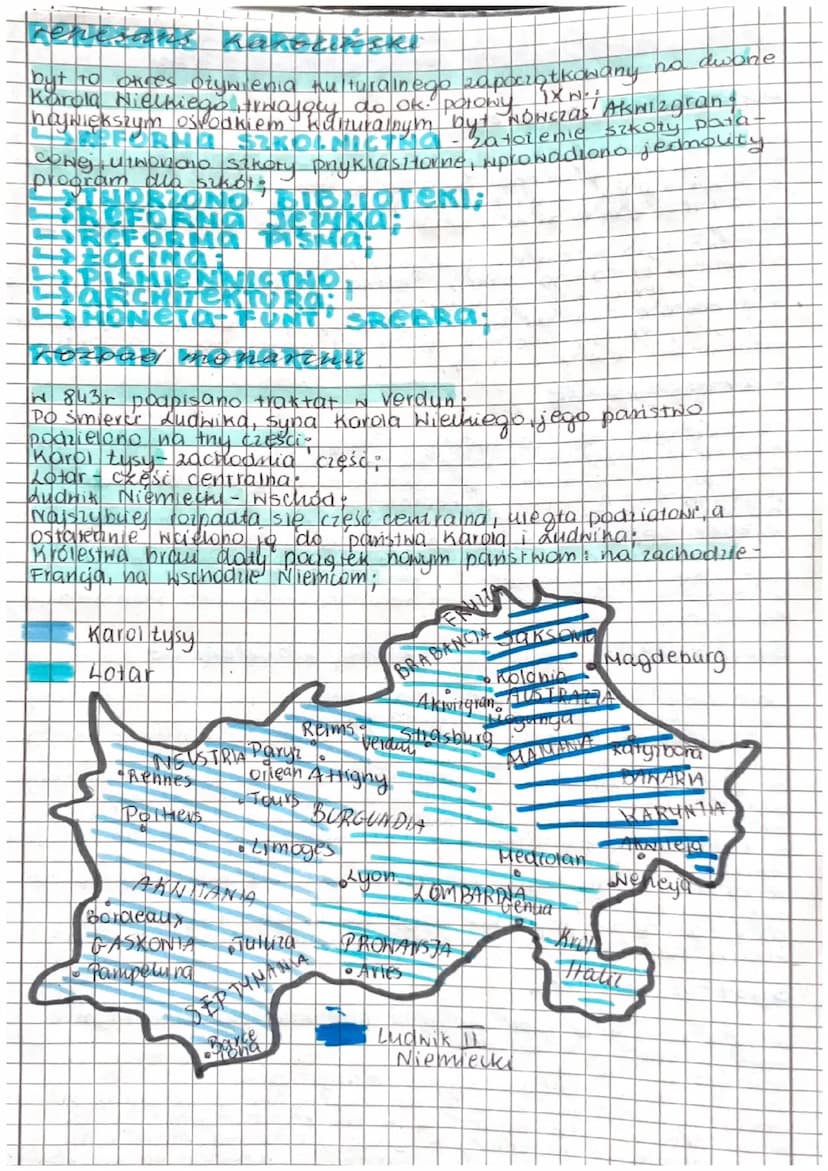 renesans karoliński
był to okres ożywienia kulturalnego zapoczątkowany na dworze
Karola Wielkiego, trwający do ok. połowy IX w.;
największym ośrodkiem kulturalnym był wówczas Akwizgran;
↳REFORMA SZKOLNICTWA - założenie szkoły pała-
cowej, utworzono szkoły przyklasztorne, wprowadzono jednolity
program dla szkół;
↳TWORZONO BIBLIOTEKI;
↳REFORMA JĘZYKA;
↳REFORMA PISMA;
↳ŁACINA;
↳PIŚMIENNICTWO;
↳ARCHITEKTURA;
↳MONETA-FUNT SREBRA;
rozpad monarchii
w 843r podpisano traktat w Verdun.
Po śmierci Ludwika, syna Karola Wielkiego, jego państwo
podzielono na trzy części:
Karol Łysy- zachodnia część;
Lotar - część centralna;
Ludwik Niemiecki - wschód;
Najszybciej rozpadła się część centralna, uległa podziałowi, a
ostatecznie wcielono ją do państwa Karola i Ludwika;
Królestwa braci dały początek nowym państwom: na zachodzie -
Francja, na wschodzie Niemcom;
FRYZJA
Karol Łysy
BRABANCJA
SAKSONIA
Lotar
Magdeburg
Kolonia
Akwizgran
AUSTRAZJA
Moguncja
Reims
Verdun
Strasburg
NEUSTRIA
Paryż
AMANIA
Ratyzbona
Rennes
Orlean
Attigny
BAWARIA
Tours
Poitiers
BURGUNDIA
KARYNTIA
Limoges
Mediolan
Akwileja
Lyon
Wenecja
AKWITANIA
LOMBARDIA
Genua
Bordeaux
GASKONIA
Tuluza
PROWANSJA
Król
Italii
Pampeluna
Arles
SEPTYMANIA
Barce
lona
Ludwik II
Niemiecki